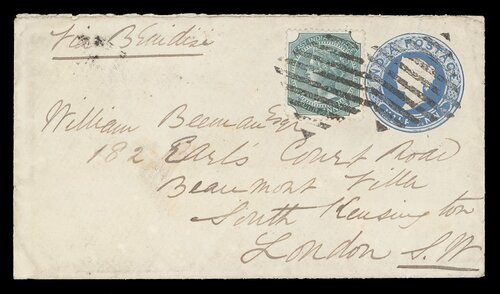 Via Brindisi
INDIA POSTAGE
William Beeman Esqr
182 Earl's Court Road
Beaumont Villa
South Kensington
London S.W